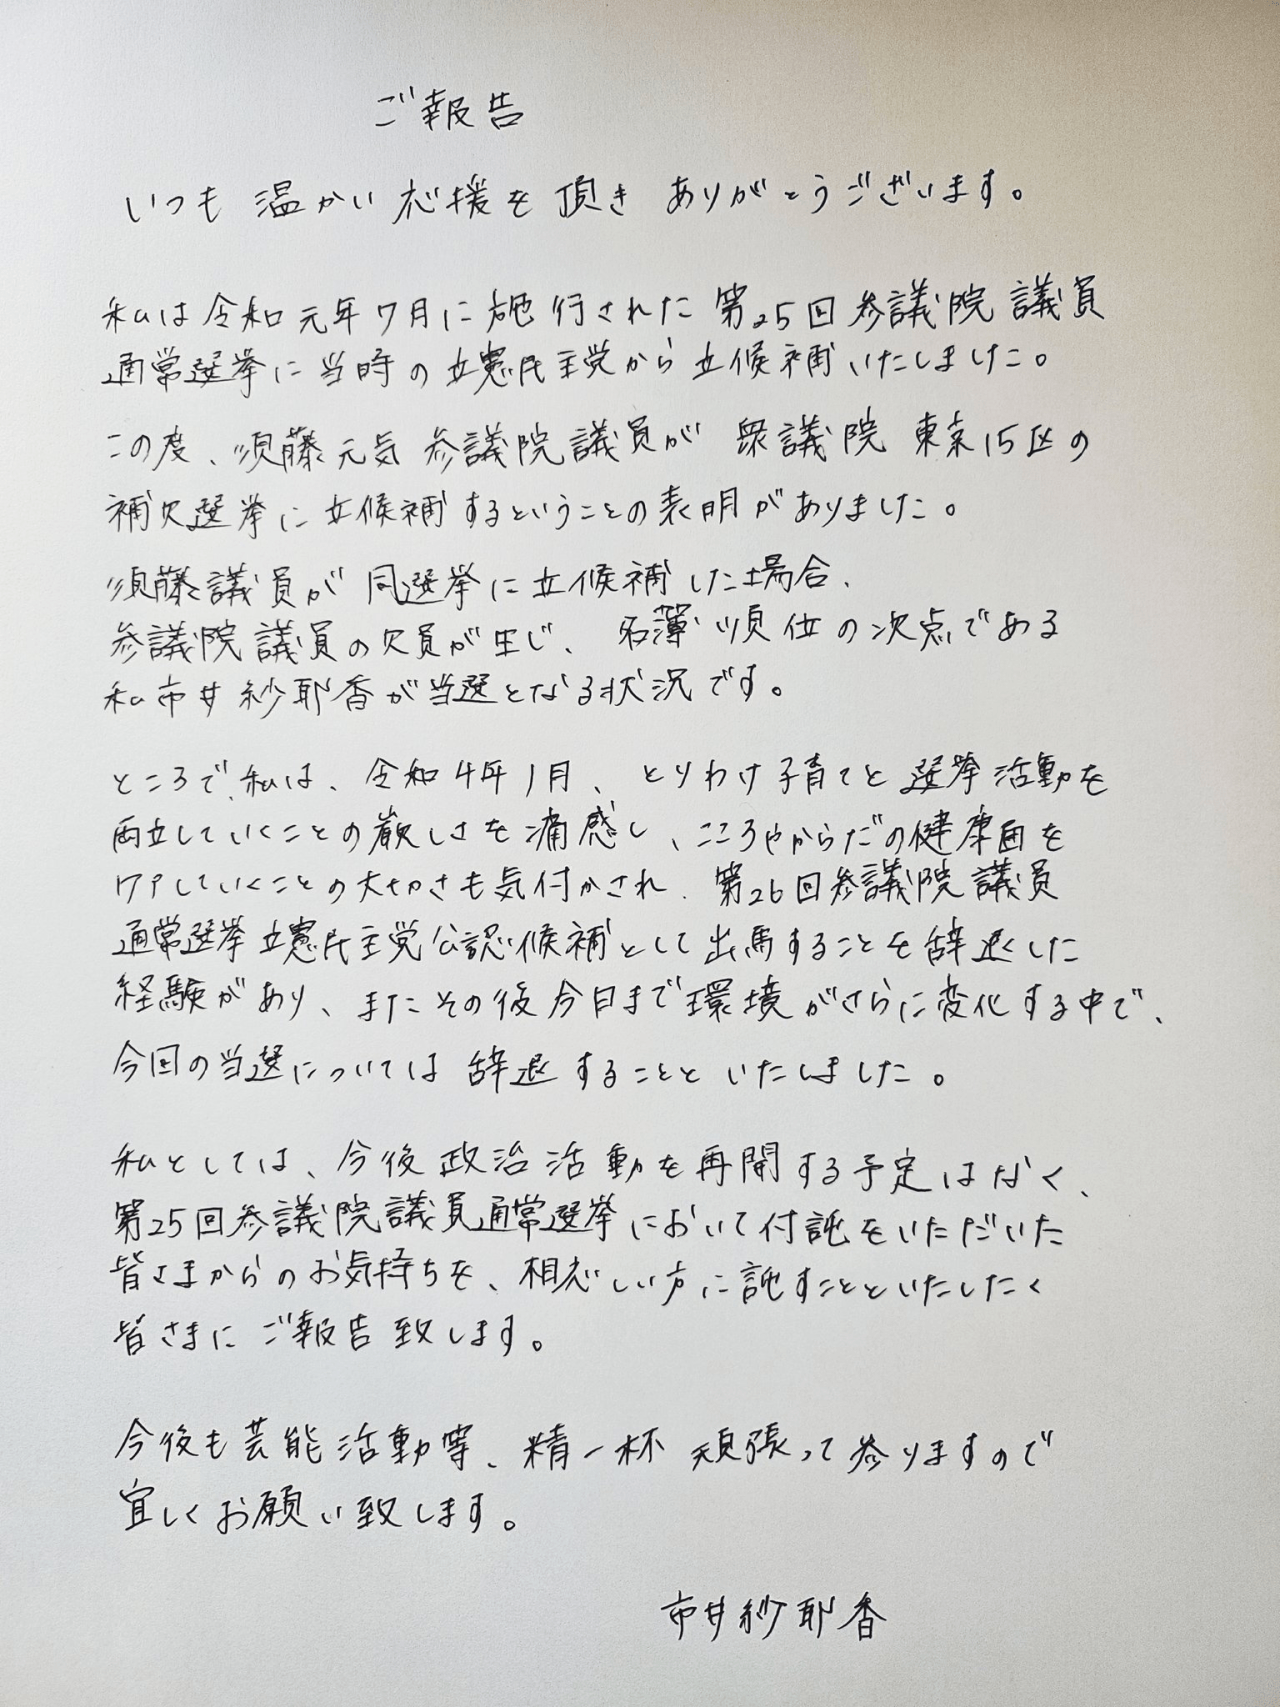 ご報告
いつも温かい応援を頂きありがとうございます。
私は令和元年7月に施行された第25回参議院議員
通常選挙に当時の立憲民主党から立候補いたしました。
この度、須藤元気参議院議員が衆議院東京15区の
補欠選挙に立候補するということの表明がありました。
須藤議員が同選挙に立候補した場合、
参議院議員の欠員が生じ、名簿順位の次点である
私市井紗耶香が当選となる状況です。
ところで、私は、令和4年1月、とりわけ子育てと選挙活動を
両立していくことの厳しさを痛感し、こころやからだの健康面を
ケアしていくことの大切さも気付かされ、第26回参議院議員
通常選挙立憲民主党公認候補として出馬することを辞退した
経験があり、またその後今日まで環境がさらに変化する中で、
今回の当選については辞退することといたしました。
私としては、今後政治活動を再開する予定はなく、
第25回参議院議員通常選挙において付託をいただいた
皆さまからのお気持ちを、相応しい方に託すことといたしたく
皆さまにご報告致します。
今後も芸能活動等、精一杯頑張って参りますので
宜しくお願い致します。
市井紗耶香